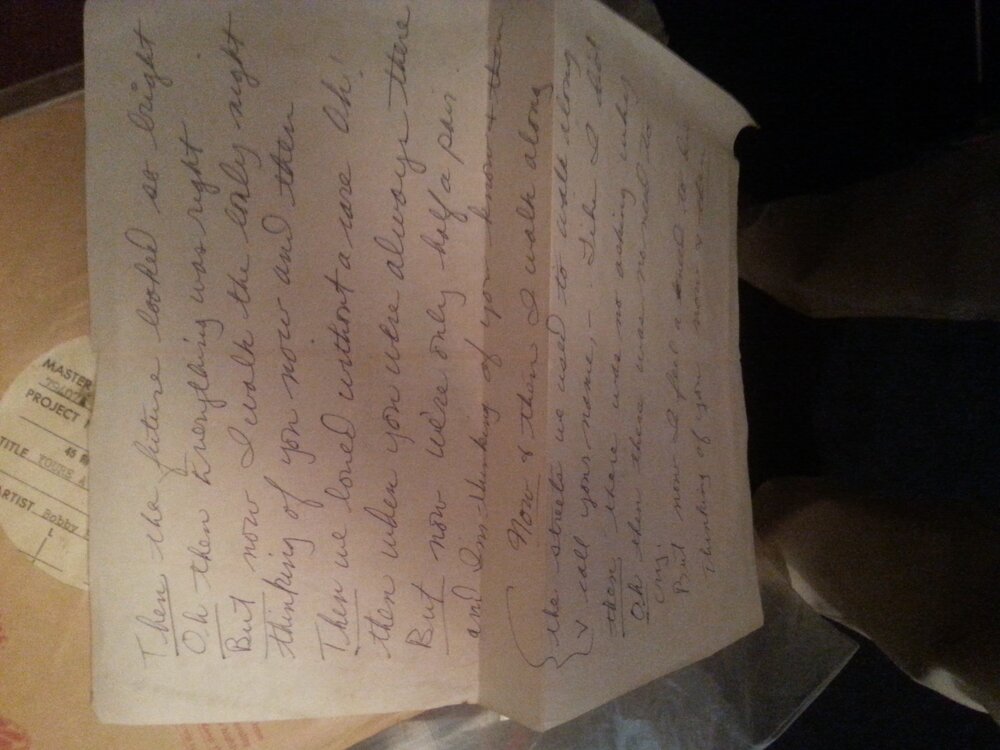 MASTER
PROJECT
45
TITLE YOURS
ARTIST Bobby
Then the future looked so bright
Oh then Everything was right.
But now I walk the lonly night
thinking of you now and then
Then we loved without a care Oh!
then when you were always there
But now we're only half a pair
and Im thinking of you now & then
Now & then I walk along
the streets we used to walk along
& call your name, - Like I did
then there was no asking why
Oh then there was no need to
cry.
But now I feel a
thinking of you now & then